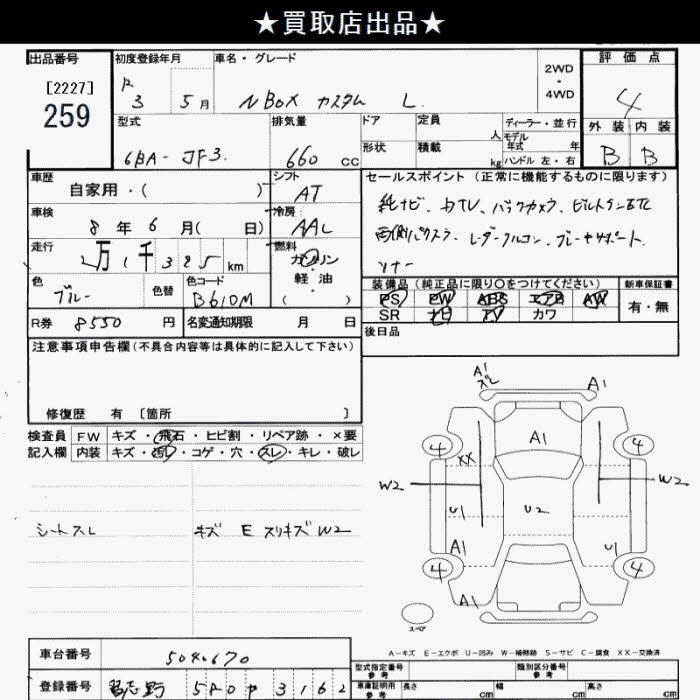 ★買取店出品★
出品番号 初度登録年月 車名・グレード 2WD・4WD 評価点
[2227]
259
R 3 5月 N BOX カスタム L 4
型式 排気量 ドア 定員 人 ディーラー・並行 外装 内装
6BA-JF3 660 CC 形状 積載 kg モデル年式 年 ハンドル 左・右 B B
車歴 シフト セールスポイント (正常に機能するものに限ります)
自家用・( ) AT
車検 冷房 純ナビ、カTV、バックカメラ、ビルトインETC
8年6月( 日) AAC 両側パワスラ、レーダークルコン、ブレーキサポート、
走行 燃料 ソナー
2万1千325km ガソリン・軽油 ( )
色 色替 色コード 装備品 (純正品に限り〇をつけてください) 新車保証書
ブルー B610M PS PW ABS エアB AW 有・無
SR ナビ TV カワ
R券 8550円 名変通知期限 月 日 後日品
注意事項申告欄(不具合内容等は具体的に記入して下さい)
修復歴 有 [箇所 ]
検査員記入欄 FW キズ・飛石・ヒビ割・リペア跡・×要
内装 キズ・汚れ・コゲ・穴・スレ・キレ・破レ
シートスレ キズ E スリキズ W2
A1
スレ
A1
A1
4 4
XX
W2 W2
U1 U2
A1 U1
4 4
A1
スペア
A-キズ E-エクボ U-凹み W-補修跡 S-サビ C-腐食 XX-交換済
車台番号 5040670
型式指定番号 参考 類別区分番号 参考
登録番号 習志野 580 3162
車庫証明用 参考 長さ cm 幅 cm 高さ cm